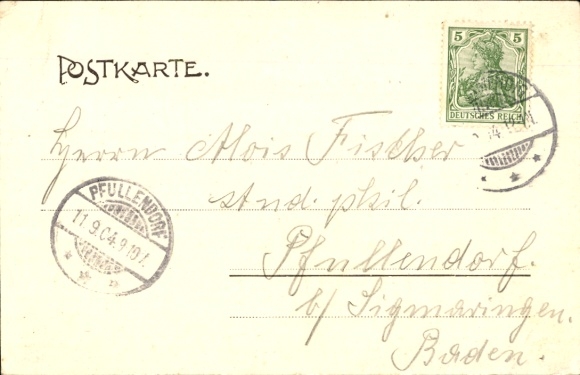 POSTKARTE.
5 5
DEUTSCHES REICH
Herrn Alois Fischer
stud. phil.
PFULLENDORF
11.9.04.9-10V.
Pfullendorf.
b/ Sigmaringen.
Baden.